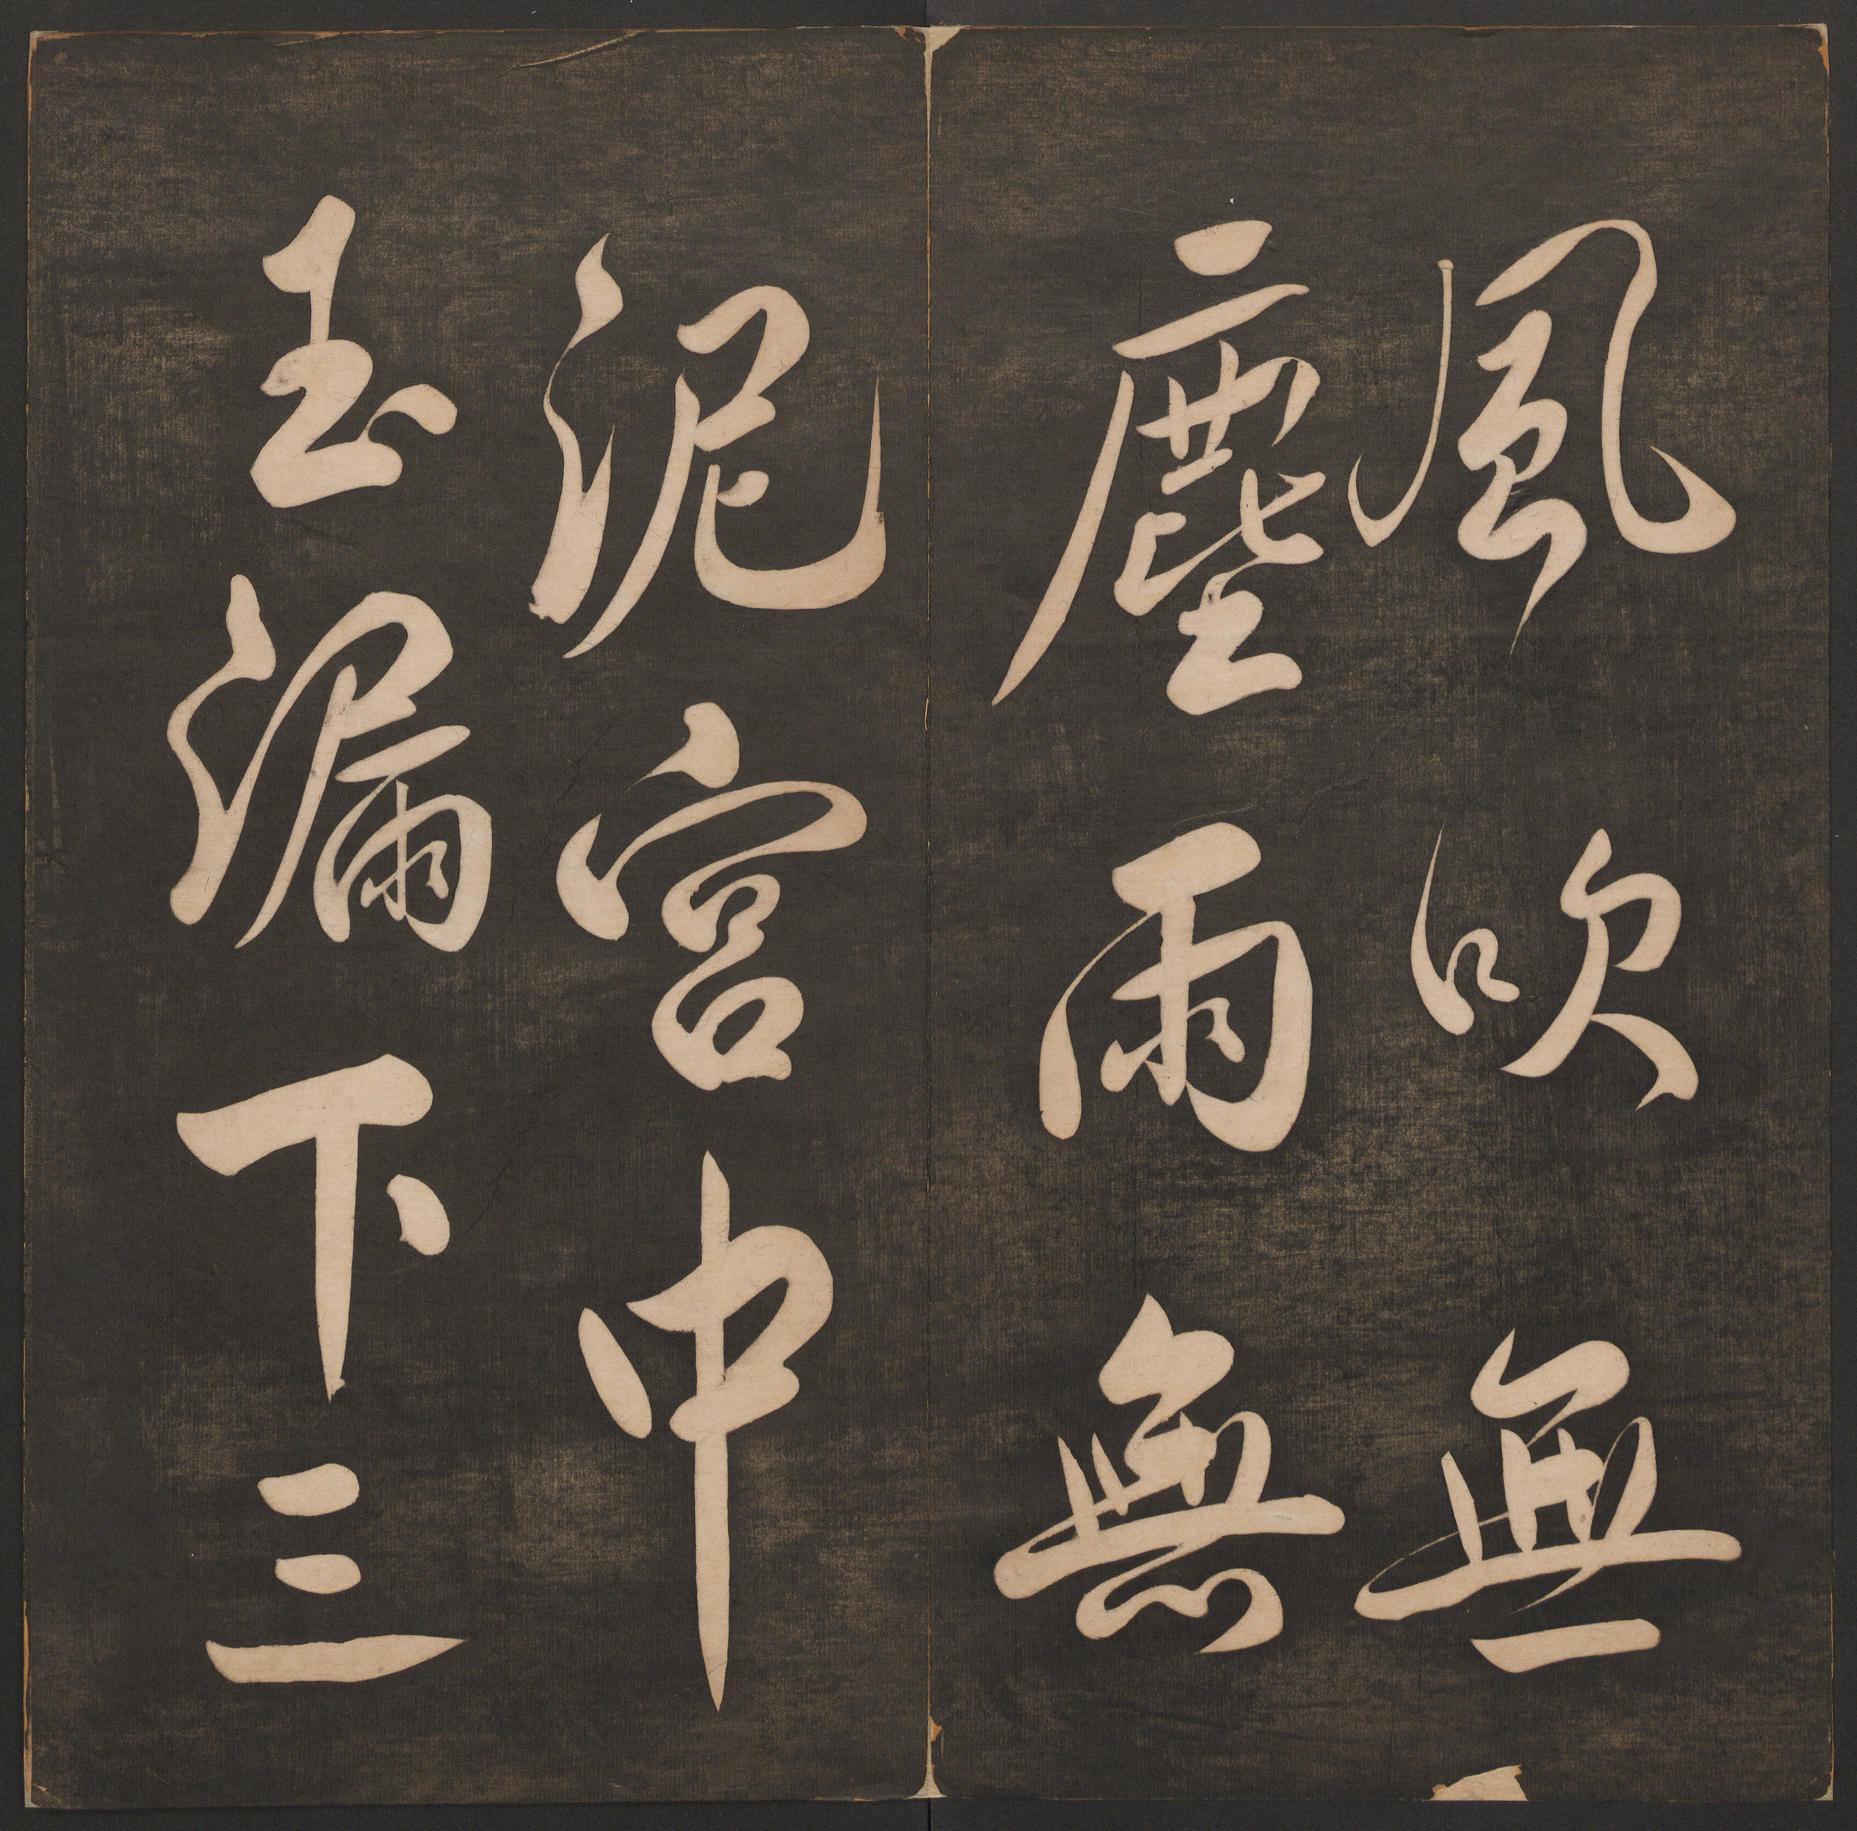 風吹無
塵雨無
泥宮中
玉漏下三